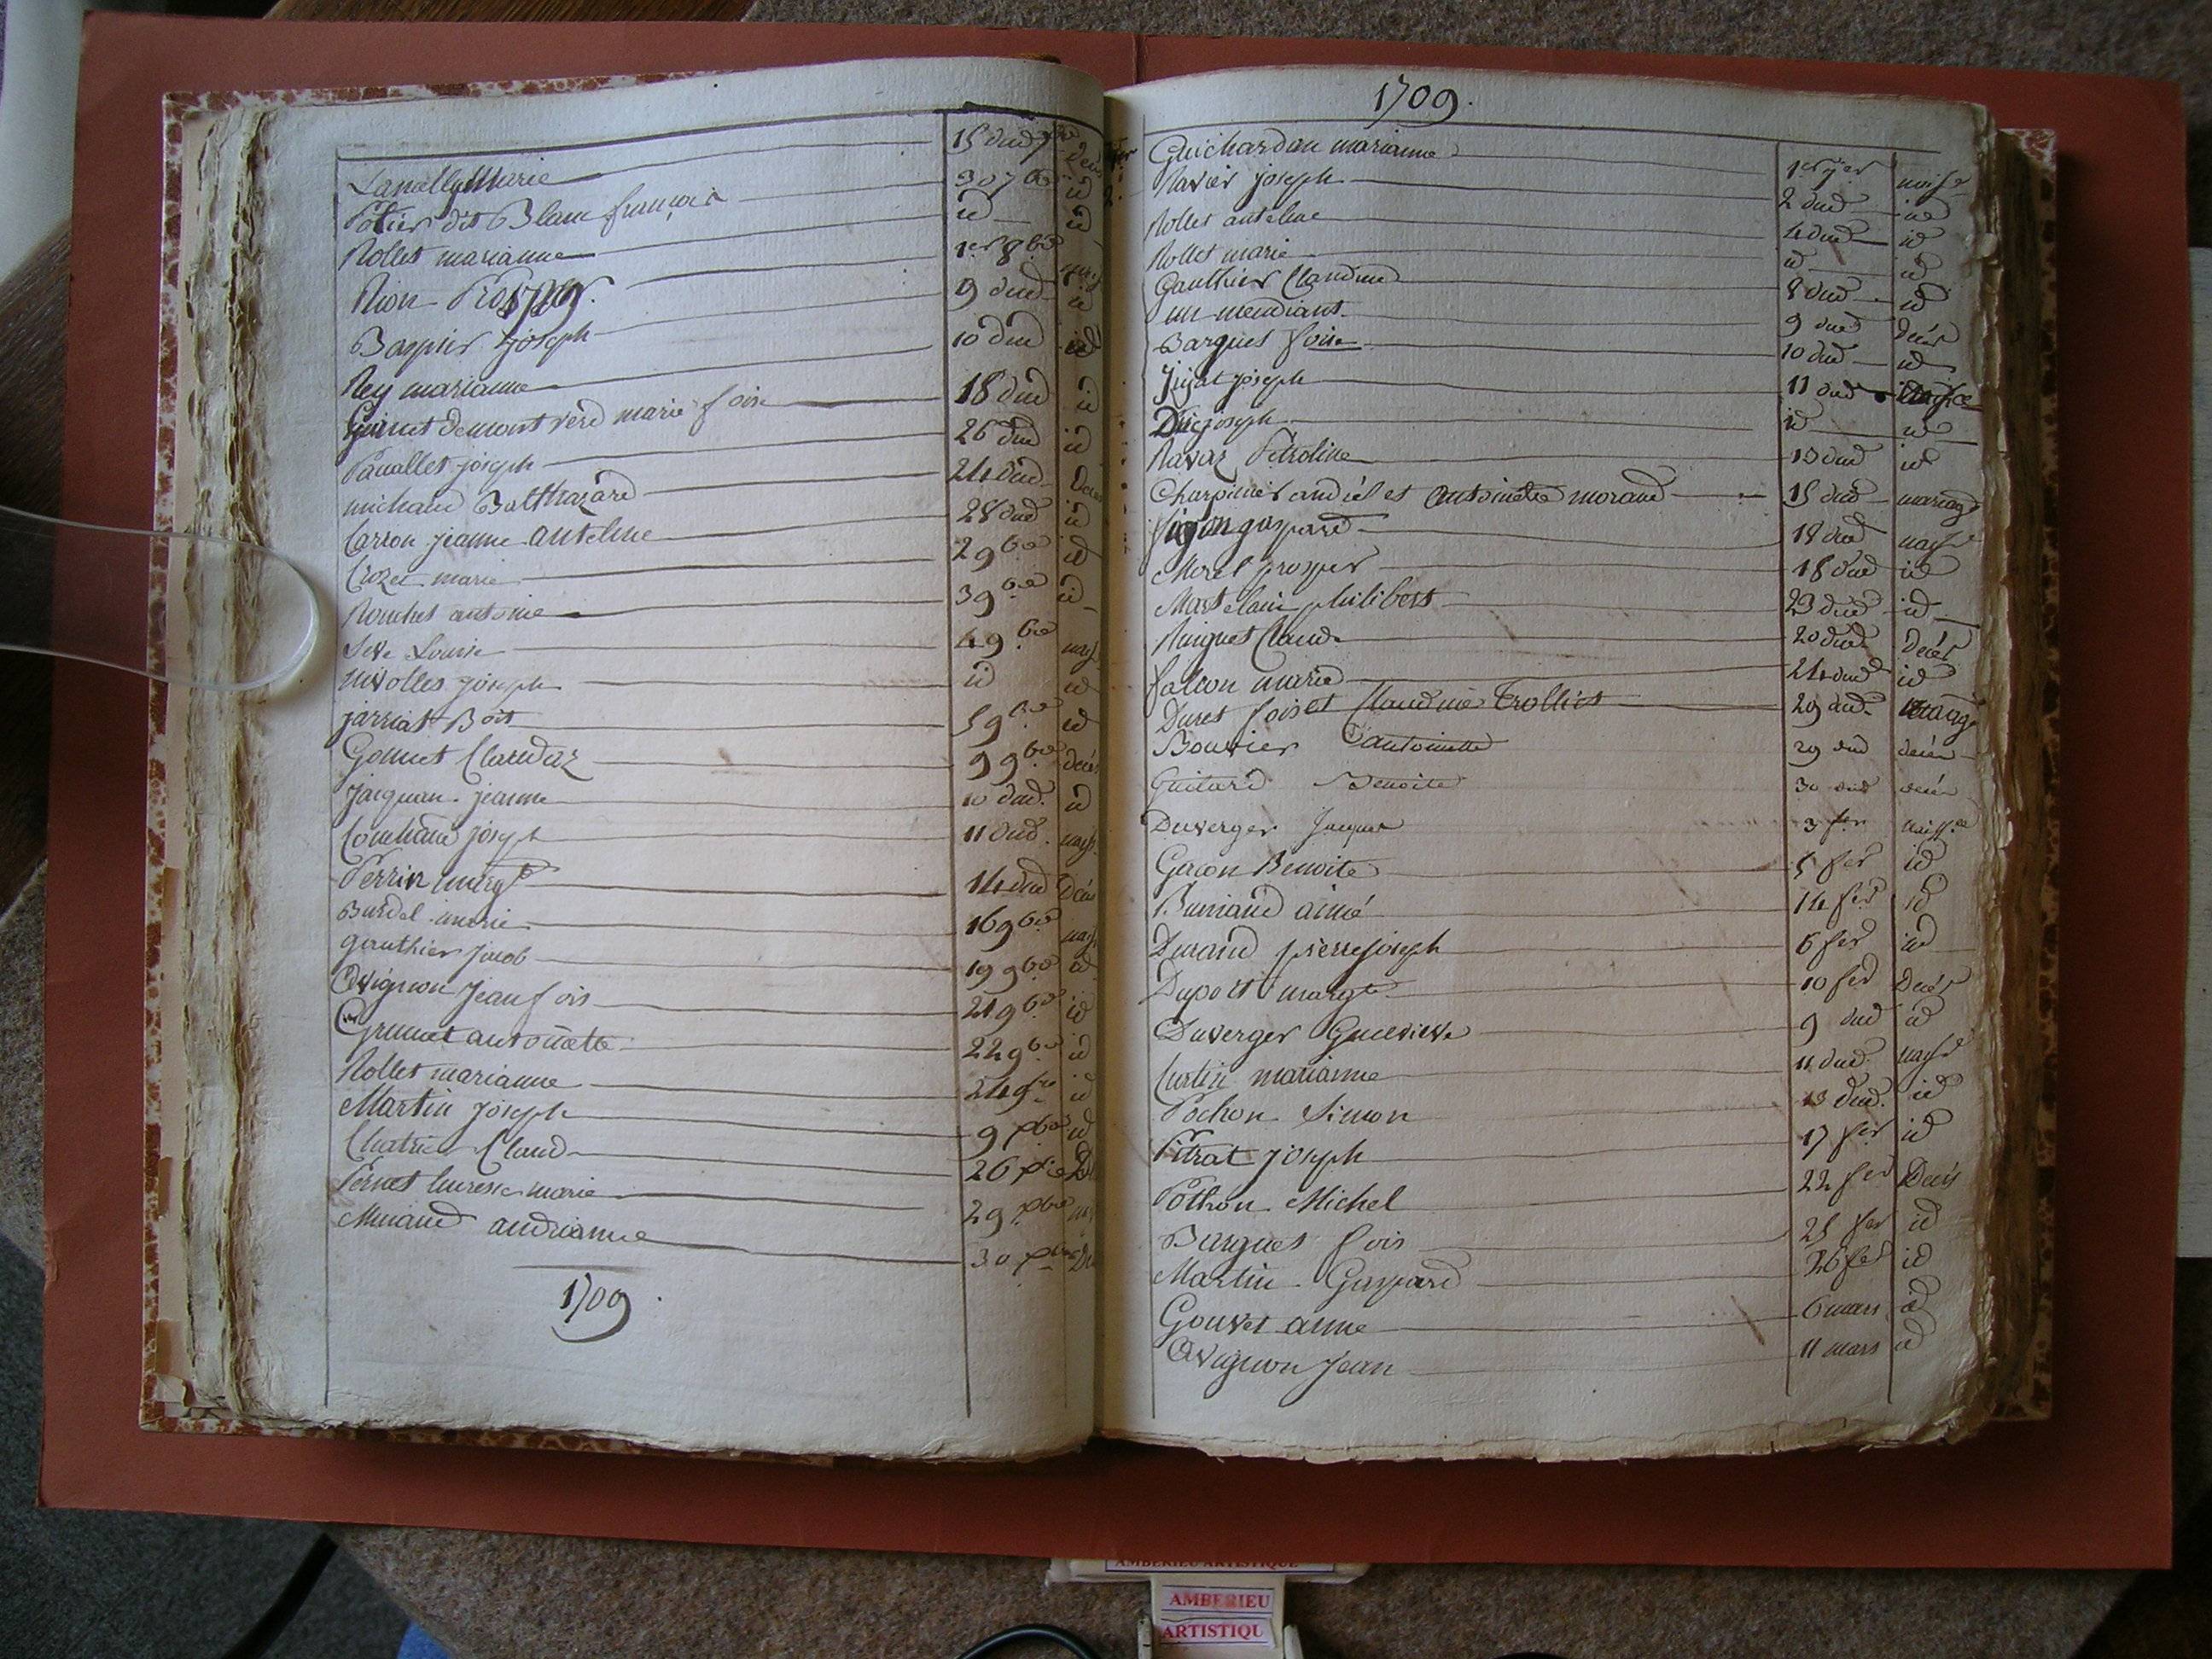 Lavally Marie 15 dud 7bre
Potier dit Blanc françois 30 7bre id
Rollet marianne id id
Rion 1er 8bre
Baspuis joseph 9 dud id
Rey marianne 10 dud id
demont verd marie foise 18 dud id
Pauallet joseph 26 dud id
michaud Balthazard 24 dud
Carron jeanne anteline 28 dud id
Crozet marie 2 9bre id
Rouchet antoine 3 9bre id
Seve Louise 4 9bre
nivolles joseph id id
jarriat Boit 5 9bre id
Gonnet Claudaz 9 9bre decés
Jacquan jeanne 10 dud id
joseph 11 dud
Perrin margte 14 dud
Burdel marie 16 9bre
Gauthier jacob 19 9bre id
Avignon Jean fois 21 9bre id
Grumet antoinette 22 9bre id
Rollet marianne 24 9bre id
Martin joseph 9 xbre id
Claud 26 xbre
Pernet marie 29 xbre
andrianne 30 xbre
1709.
1709.
Guichardan marianne 1er jer
Ravier joseph 2 dud id
Rollet anteline 4 dud id
Rollet marie id id
Gauthier Claudine 8 dud id
un mendiant 9 dud Decés
Barques foise 10 dud id
joseph 11 dud
Duc joseph id id
Ravaz Petroline 13 dud id
Charpines andré et antoinette morand 15 dud mariage
gaspard 18 dud
Morel prosper 18 dud id
Martelain philibert 23 dud id
Ruiguet Claude 20 dud Decés
falcon marie 24 dud id
Duret fois et Claudine Trolliet 29 dud
Bouvier antoinette 29 dud decés
Guitard Benoite 30 dud decés
Duverger Jacques 3 fer naissce
Gacon Benoite 5 fer id
aimé 14 fer id
Durand pierre joseph 6 fer id
Duport margte 10 fer Decés
Duverger Genevieve 9 dud id
Curtin marianne 11 dud
Pochon Simon 13 dud id
Pitrat joseph 17 fer id
Pothon Michel 22 fer Decés
Burgues fois 25 fer id
Martin Gaspard 26 fer id
Gouvet anne 6 mars id
Avignon Jean 11 mars id
AMBERIEU ARTISTIQUE
AMBERIEU
ARTISTIQU